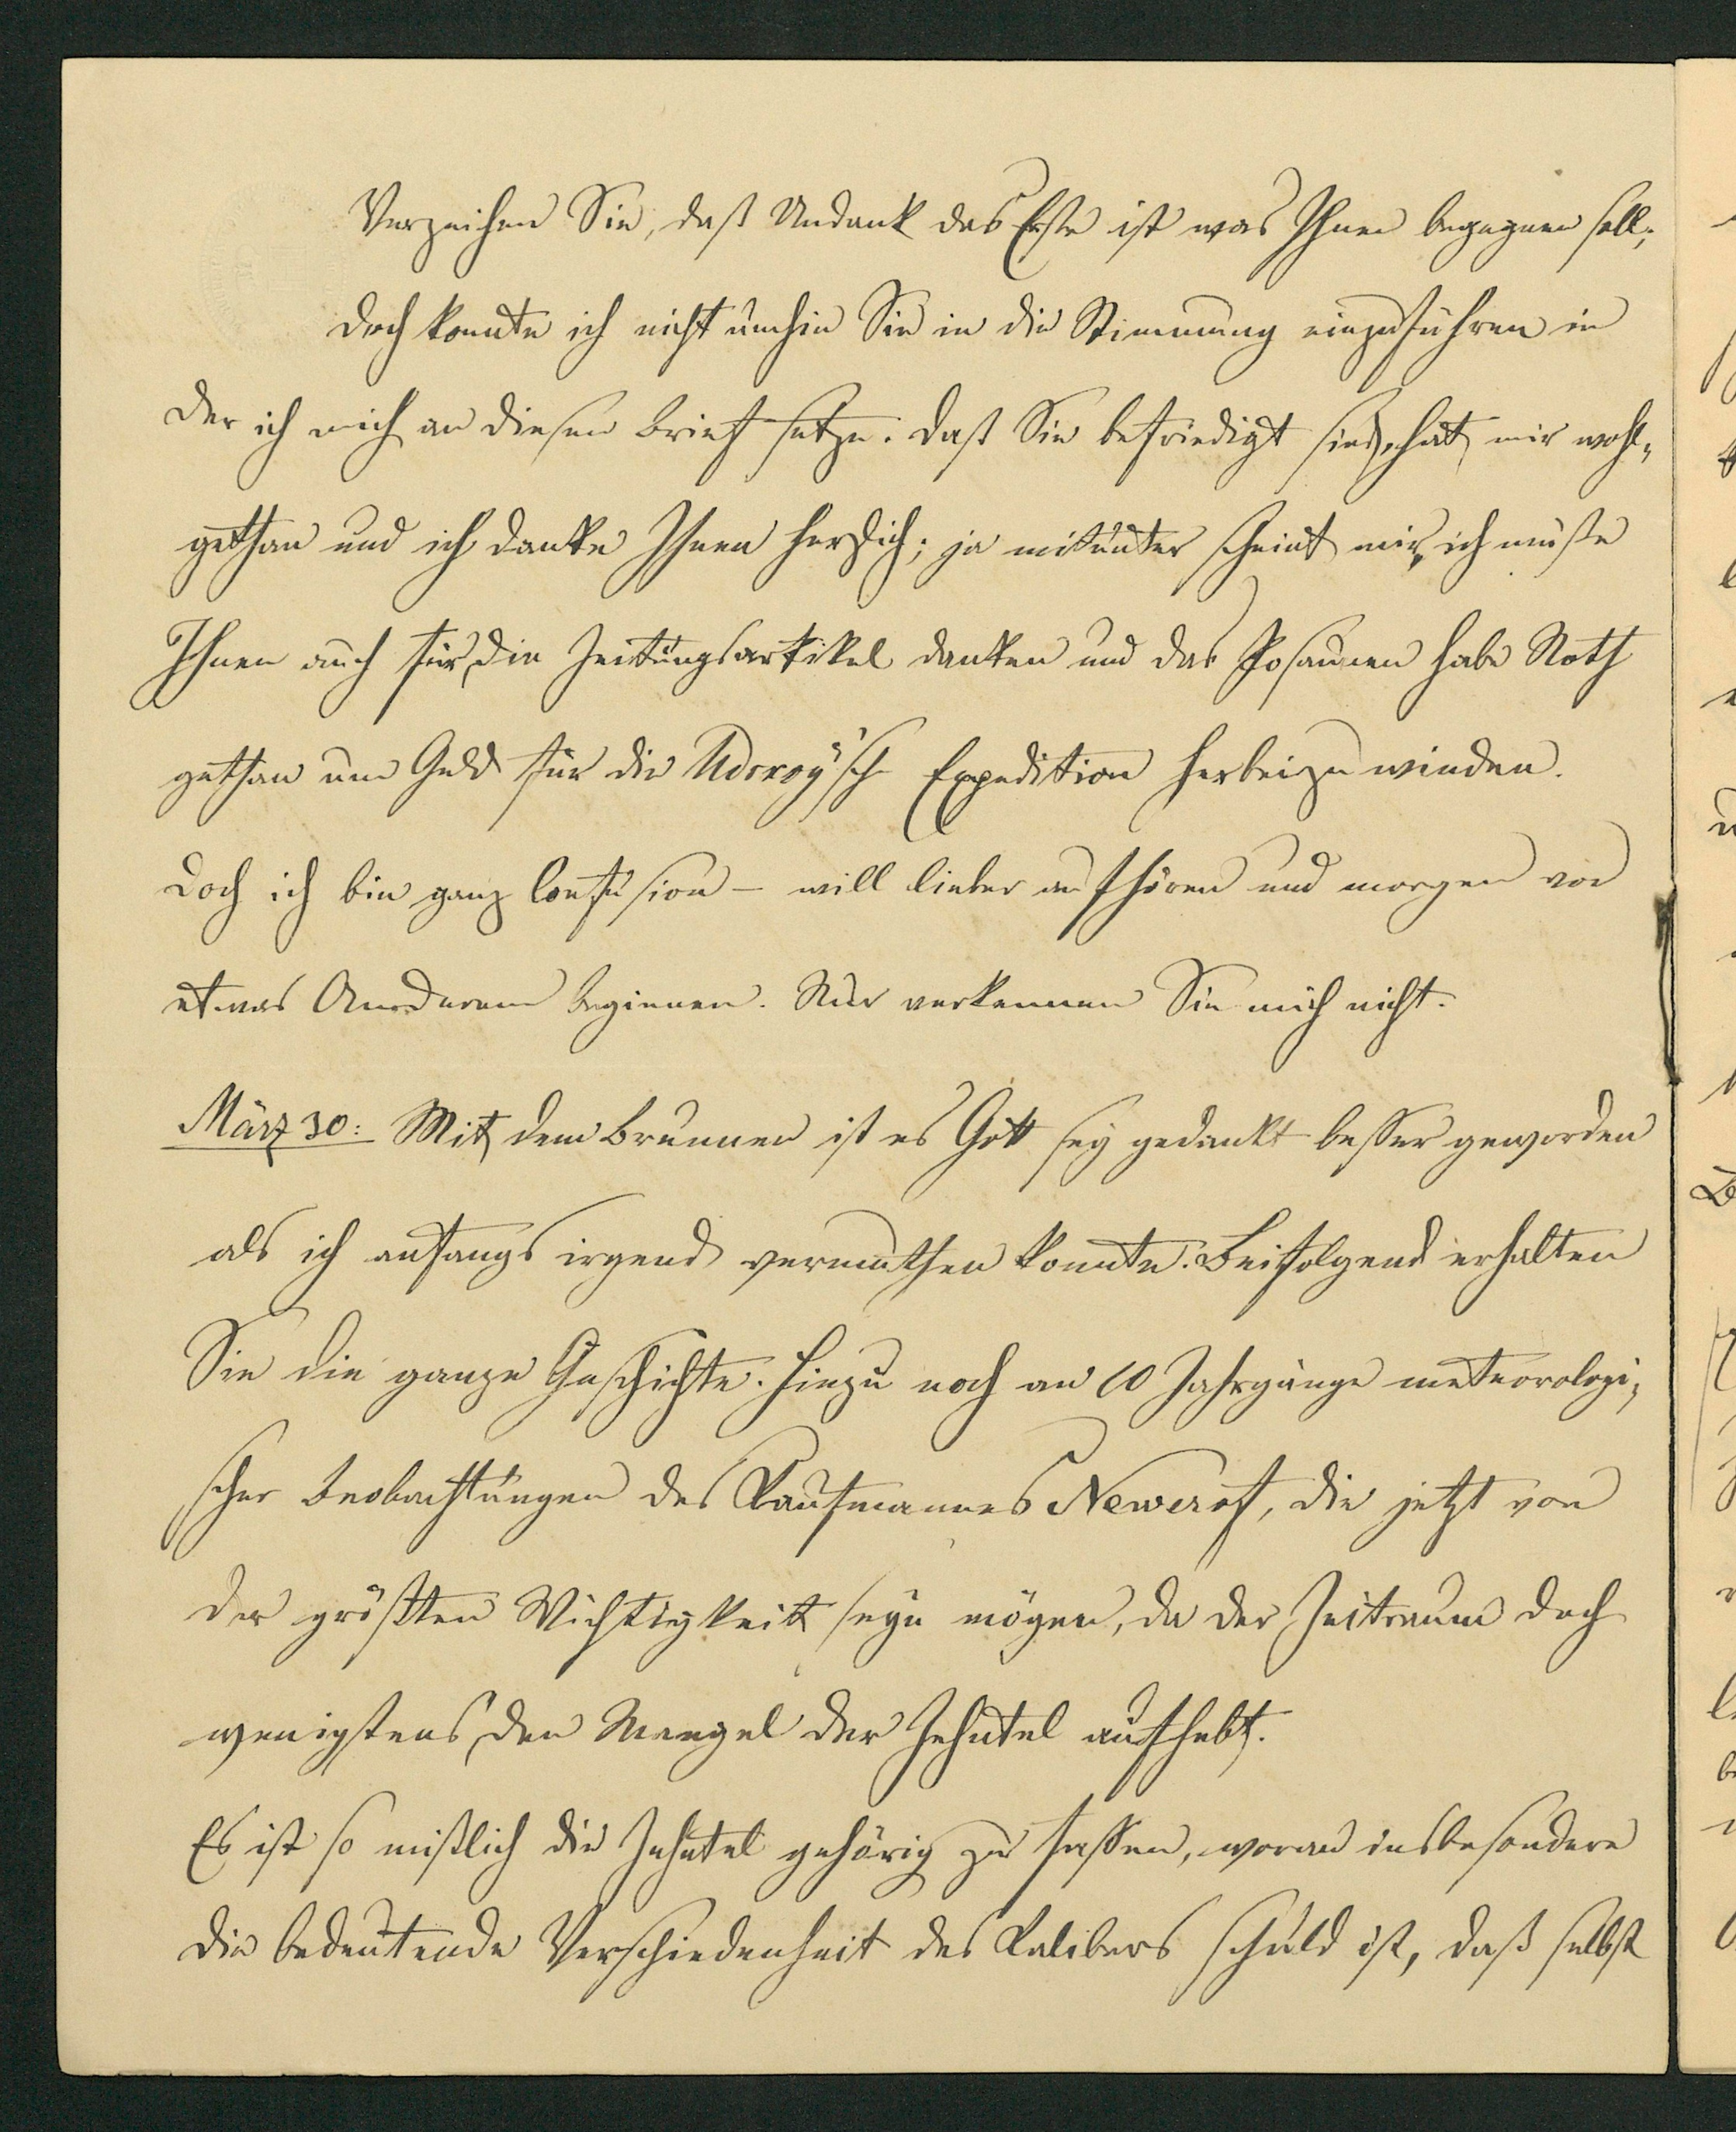 Verzeihen Sie, daß Undank das Erste ist was Ihnen begegnen soll;
doch konnte ich nicht umhin Sie in die Stimmung einzuführen in
der ich mich an diesen Brief setze. Daß Sie befriedigt sind, hat mir wohl-
gethan und ich danke Ihnen herzlich; ja mitunter scheint mir, ich müßte
Ihnen auch für die Zeitungsartikel danken und das Posaunen habe Noth
gethan um Geld für die Udskoy'sche Expedition herbeizuwinden.
Doch ich bin ganz Confusion – will lieber aufhören und morgen von
etwas Anderem beginnen. Nur verkennen Sie mich nicht.
März 30: Mit dem Brunnen ist es Gott sey gedankt besser geworden
als ich anfangs irgend vermuthen konnte. Beifolgend erhalten
Sie die ganze Geschichte. Hiezu noch an 10 Jahrgänge meteorologi-
scher Beobachtungen des Kaufmannes Newerof, die jetzt von
der größten Wichtigkeit seyn mögen, da der Zeitraum doch
wenigstens den Mangel der Zehntel aufhebt.
Es ist so mißlich die Zehntel gehörig zu fassen, woran insbesondere
die bedeutende Verschiedenheit des Kalibers schuld ist, daß selbst